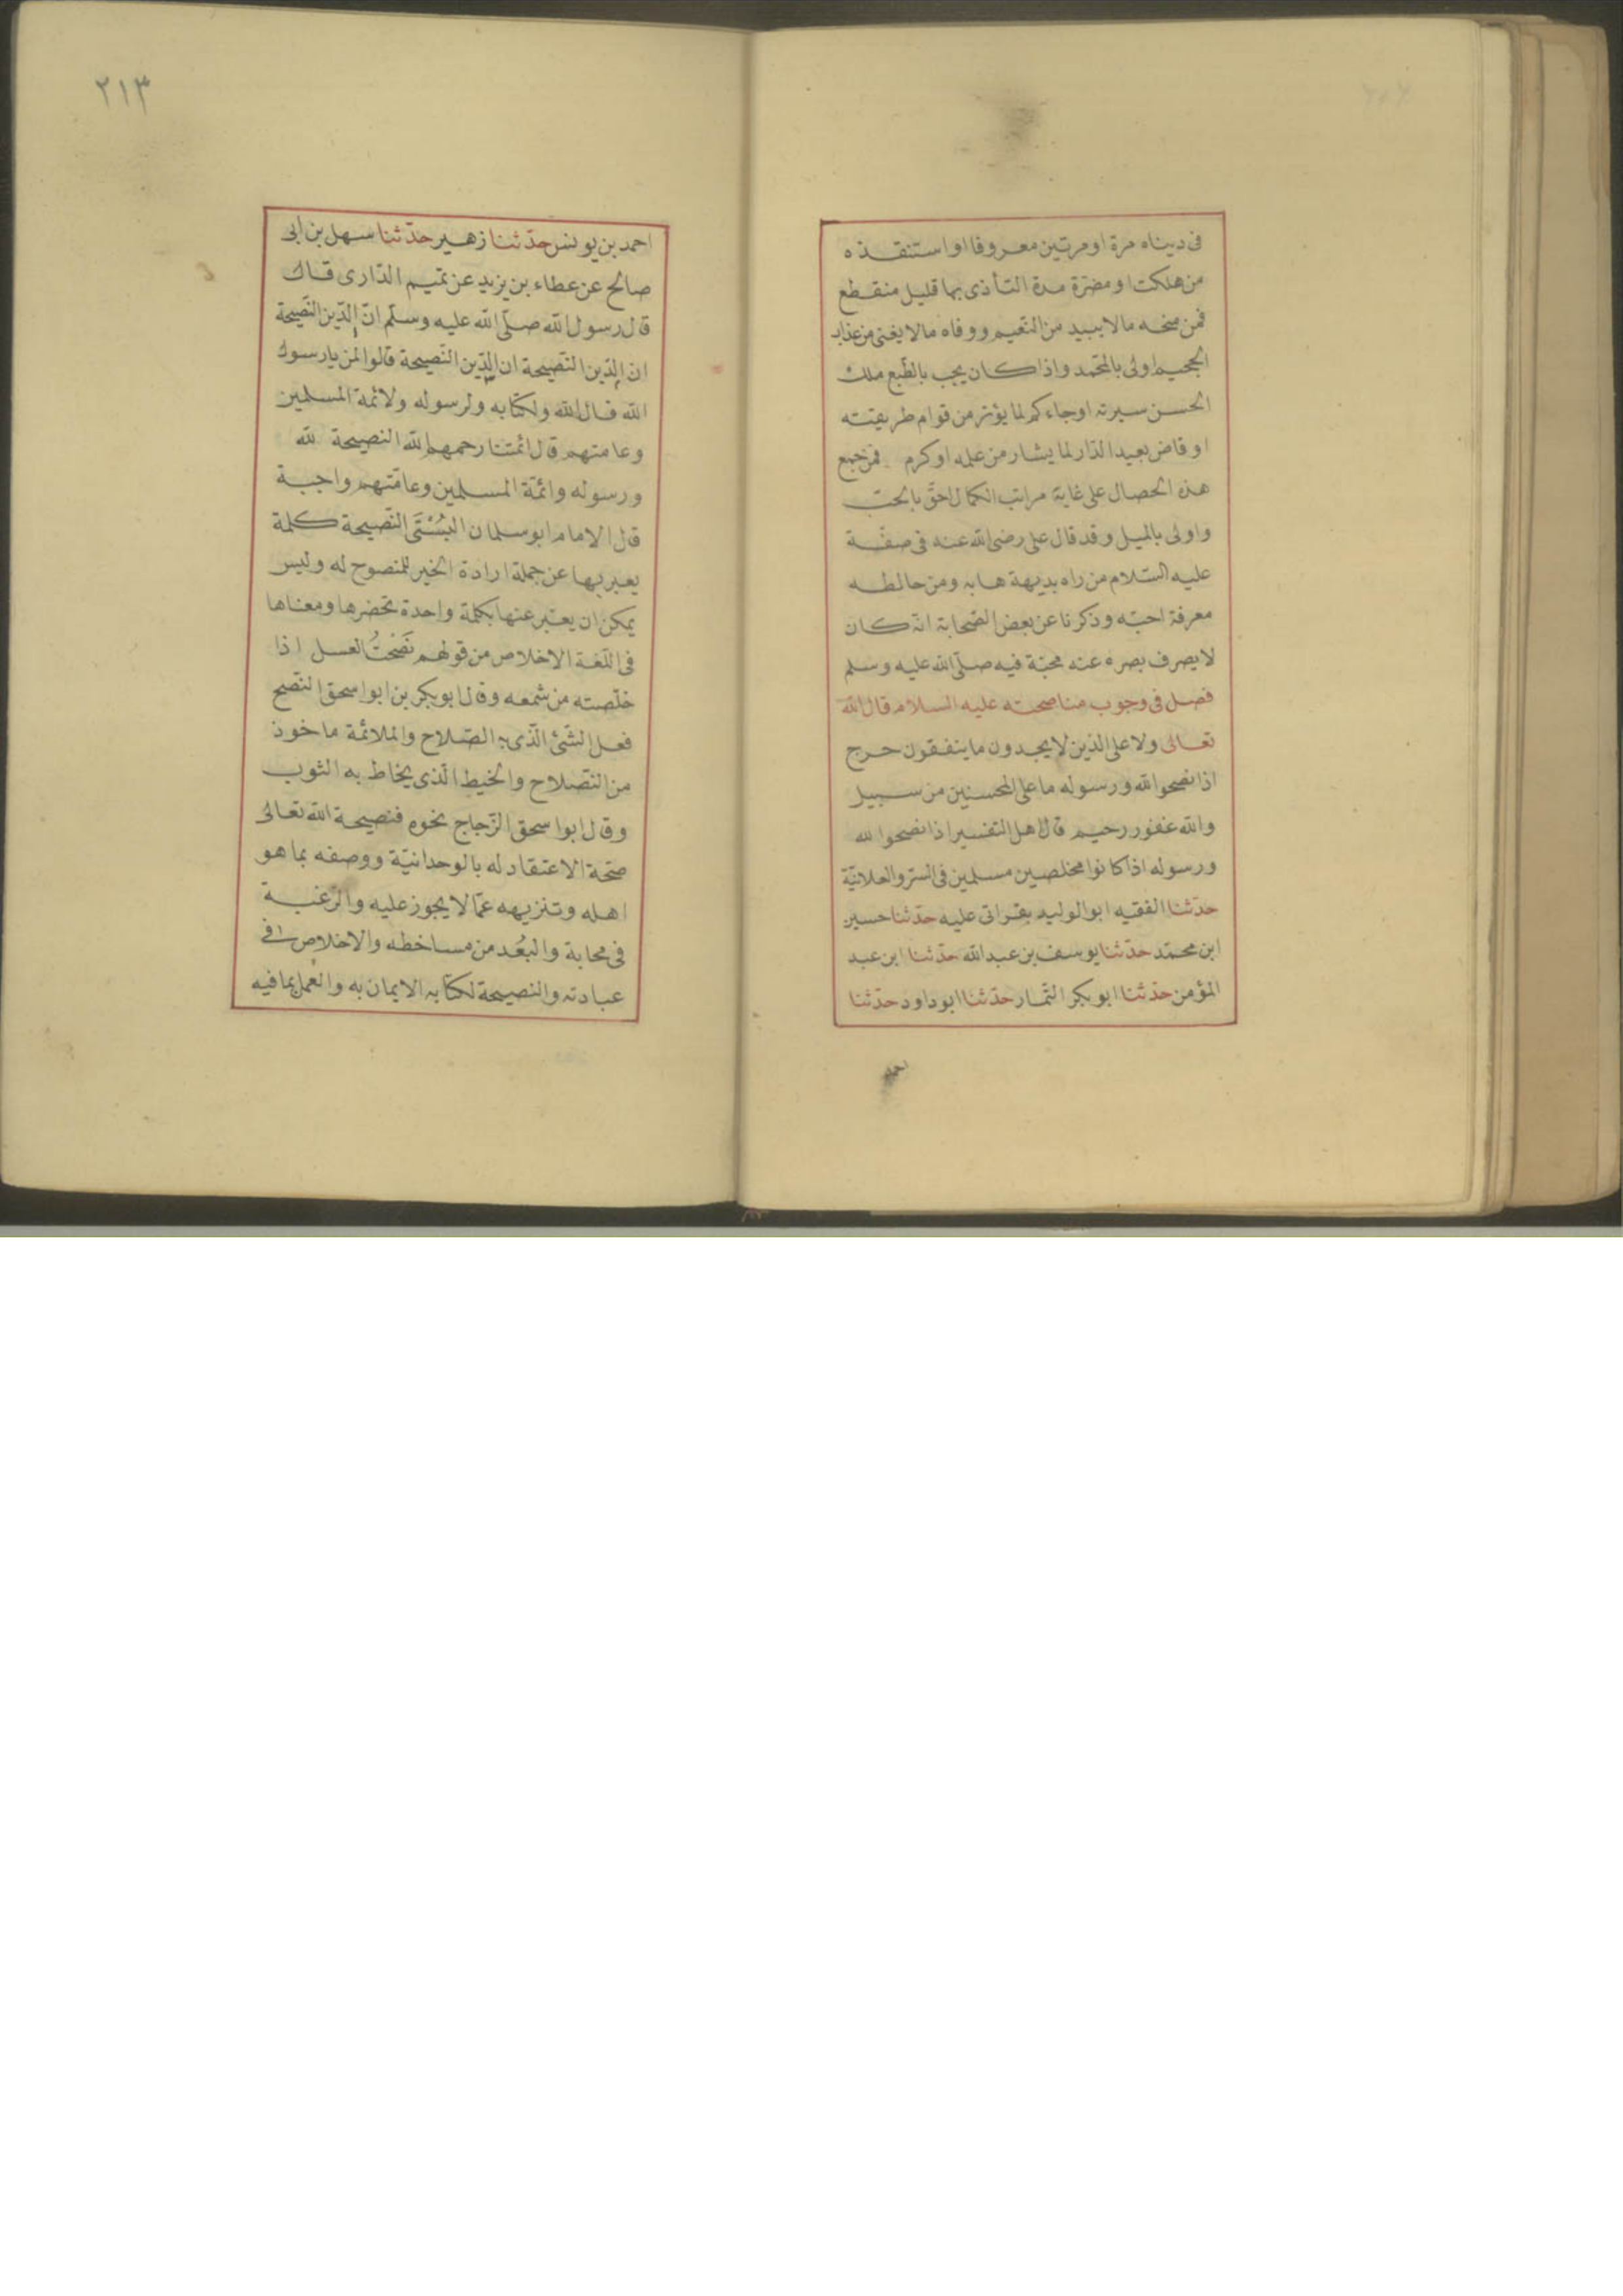 فى دنياه مرة او مرتين معروفا او استنقذه
من هلكت او مضرّة مدة التأذى بها قليل منقطع
فمن منحه مالا يبيد من النّعيم ووقاه مالا يفنى من عذاب
الجحيم اولى بالمحمد واذا كان يحب بالطّبع ملك
الحسن سيرته او حاكم لما يؤثر من قوام طريقته
او قاض بعيد الدّار لما يشار من علمه او كرم فمن جمع
هذه الخصال على غاية مراتب الكمال احقّ بالحبّ
واولى بالميل وقد قال على رضى الله عنه فى صفّة
عليه السّلام من راه بديهة هابه ومن خالطه
معرفة احبّه وذكرنا عن بعض الصّحابة انّه كان
لا يصرف بصره عنه محبّة فيه صلّى الله عليه وسلم
فصل فى وجوب مناصحته عليه السلام قال الله
تعالى ولا على الذين لا يجدون ما ينفقون حرج
اذا نصحوا لله ورسوله ما على المحسنين من سبيل
والله غفور رحيم قال اهل التفسير اذا نصحوا لله
ورسوله اذا كانوا مخلصين مسلمين فى السّرّ والعلانيّة
حدّثنا الفقيه ابو الوليد بقراتى عليه حدّثنا حسين
ابن محمّد حدّثنا يوسف بن عبد الله حدّثنا ابن عبد
المؤمن حدّثنا ابو بكر التّمار حدّثنا ابو داود حدّثنا
احمد
٢١٣
احمد بن يونس حدّثنا زهير حدّثنا سهل بن ابى
صالح عن عطاء بن يزيد عن تميم الدّارى قال
قال رسول الله صلّى الله عليه وسلّم انّ الدّين النّصيحة
ان الدّين النّصيحة ان الدّين النّصيحة قالوا لمن يا رسول
الله قال لله ولكتابه ولرسوله ولائمة المسلمين
وعامتهم قال ائمّتنا رحمهم الله النصيحة لله
ورسوله وائمّة المسلمين وعامّتهم واجبة
قال الامام ابو سلمان البُسْتَى النّصيحة كلمة
يعبر بها عن جملة ارادة الخير للمنصوح له وليس
يمكن ان يعبّر عنها بكلمة واحدة تحضرها ومعناها
فى اللّغة الاخلاص من قولهم نَصَحْتُ العسل اذا
خلّصته من شمعه وقال ابو بكر بن ابو اسحق النّصح
فعل الشّئ الّذى به الصّلاح والملائمة ماخوذ
من النّصلاح والخيط الّذى يخاط به الثوب
وقال ابو اسحق الزّجاج نحوه فنصيحة الله تعالى
صحّة الاعتقاد له بالوحدانيّة ووصفه بما هو
اهله وتنزيهه عمّا لا يجوز عليه والرّغبة
فى محابة والبُعد من مساخطه والاخلاص فى
عبادته والنصيحة لكتابه الايمان به والعمل بما فيه